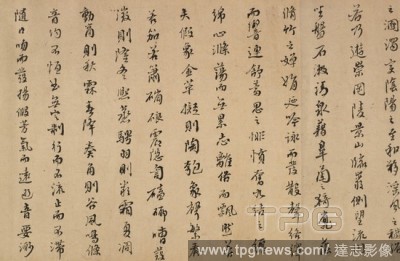 之溷濁變陰陽之至和移淫風之穢
若乃遊崇岡陵景山臨巖側望流川
坐盤石漱清泉藉皋蘭之猗靡蔭
脩竹之嬋娟乃吟詠而發散聲絡繹
而響連舒蓄思之悱憤奮久結之纏
綿心滌蕩而無累志離俗而飄然若
夫假象金革擬則陶匏眾聲繁奏
若笳若簫硠震隱訇磕嘈發
徵則隆冬熙蒸騁羽則嚴霜夏凋
動商則秋霖春降奏角則谷風鳴條
音均不恒曲無定制行而不流止而不滯
隨口吻而發揚假芳氣而遠逝音要妙
tpgimages.com
達志影像